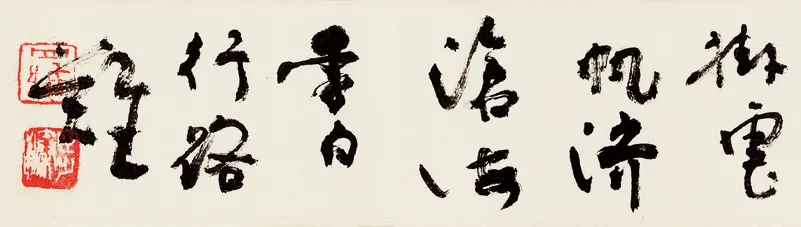 掛雲
帆濟
滄海
李白
行路
難